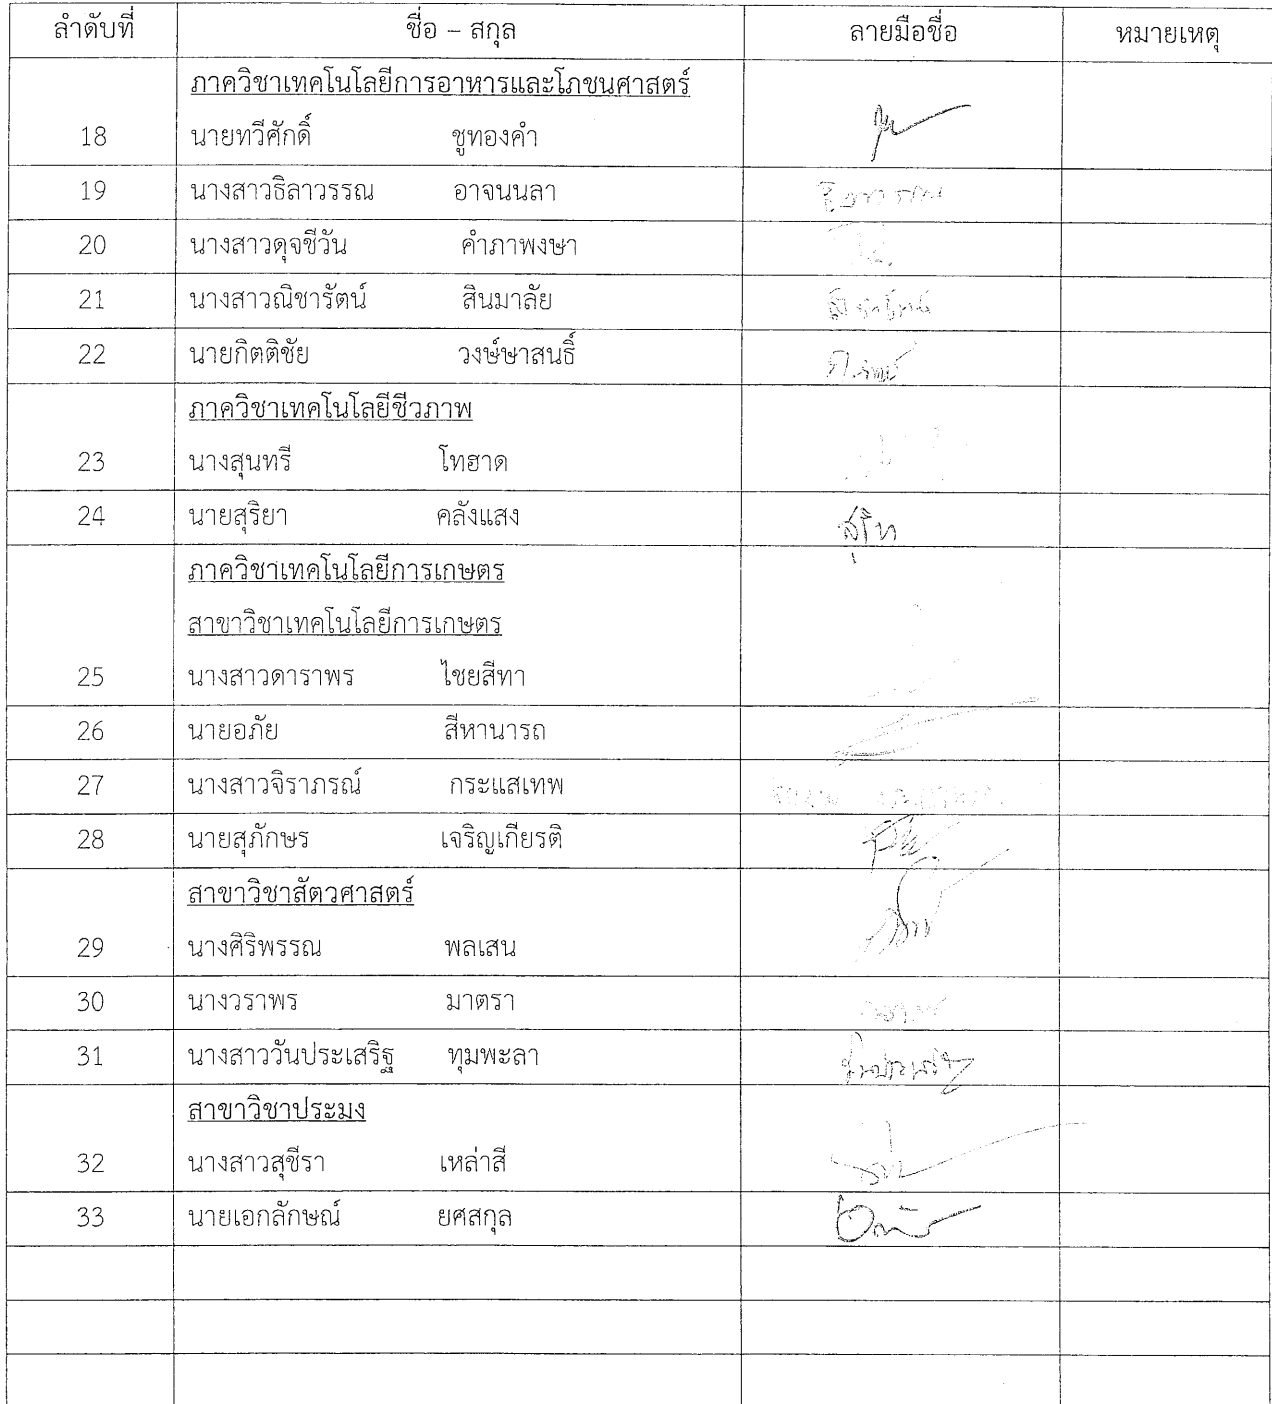 ลำดับที่ ชื่อ – สกุล ลายมือชื่อ หมายเหตุ
ภาควิชาเทคโนโลยีการอาหารและโภชนศาสตร์
18 นายทวีศักดิ์ ชูทองคำ
19 นางสาวธิลาวรรณ อาจนนลา
20 นางสาวดุจชีวัน คำภาพงษา
21 นางสาวณิชารัตน์ สินมาลัย
22 นายกิตติชัย วงษ์ษาสนธิ์
ภาควิชาเทคโนโลยีชีวภาพ
23 นางสุนทรี โทฮาด
24 นายสุริยา คลังแสง
ภาควิชาเทคโนโลยีการเกษตร
สาขาวิชาเทคโนโลยีการเกษตร
25 นางสาวดาราพร ไชยสีทา
26 นายอภัย สีหานารถ
27 นางสาวจิราภรณ์ กระแสเทพ
28 นายสุภักษร เจริญเกียรติ
สาขาวิชาสัตวศาสตร์
29 นางศิริพรรณ พลเสน
30 นางวราพร มาตรา
31 นางสาววันประเสริฐ ทุมพะลา
สาขาวิชาประมง
32 นางสาวสุชีรา เหล่าสี
33 นายเอกลักษณ์ ยศสกุล